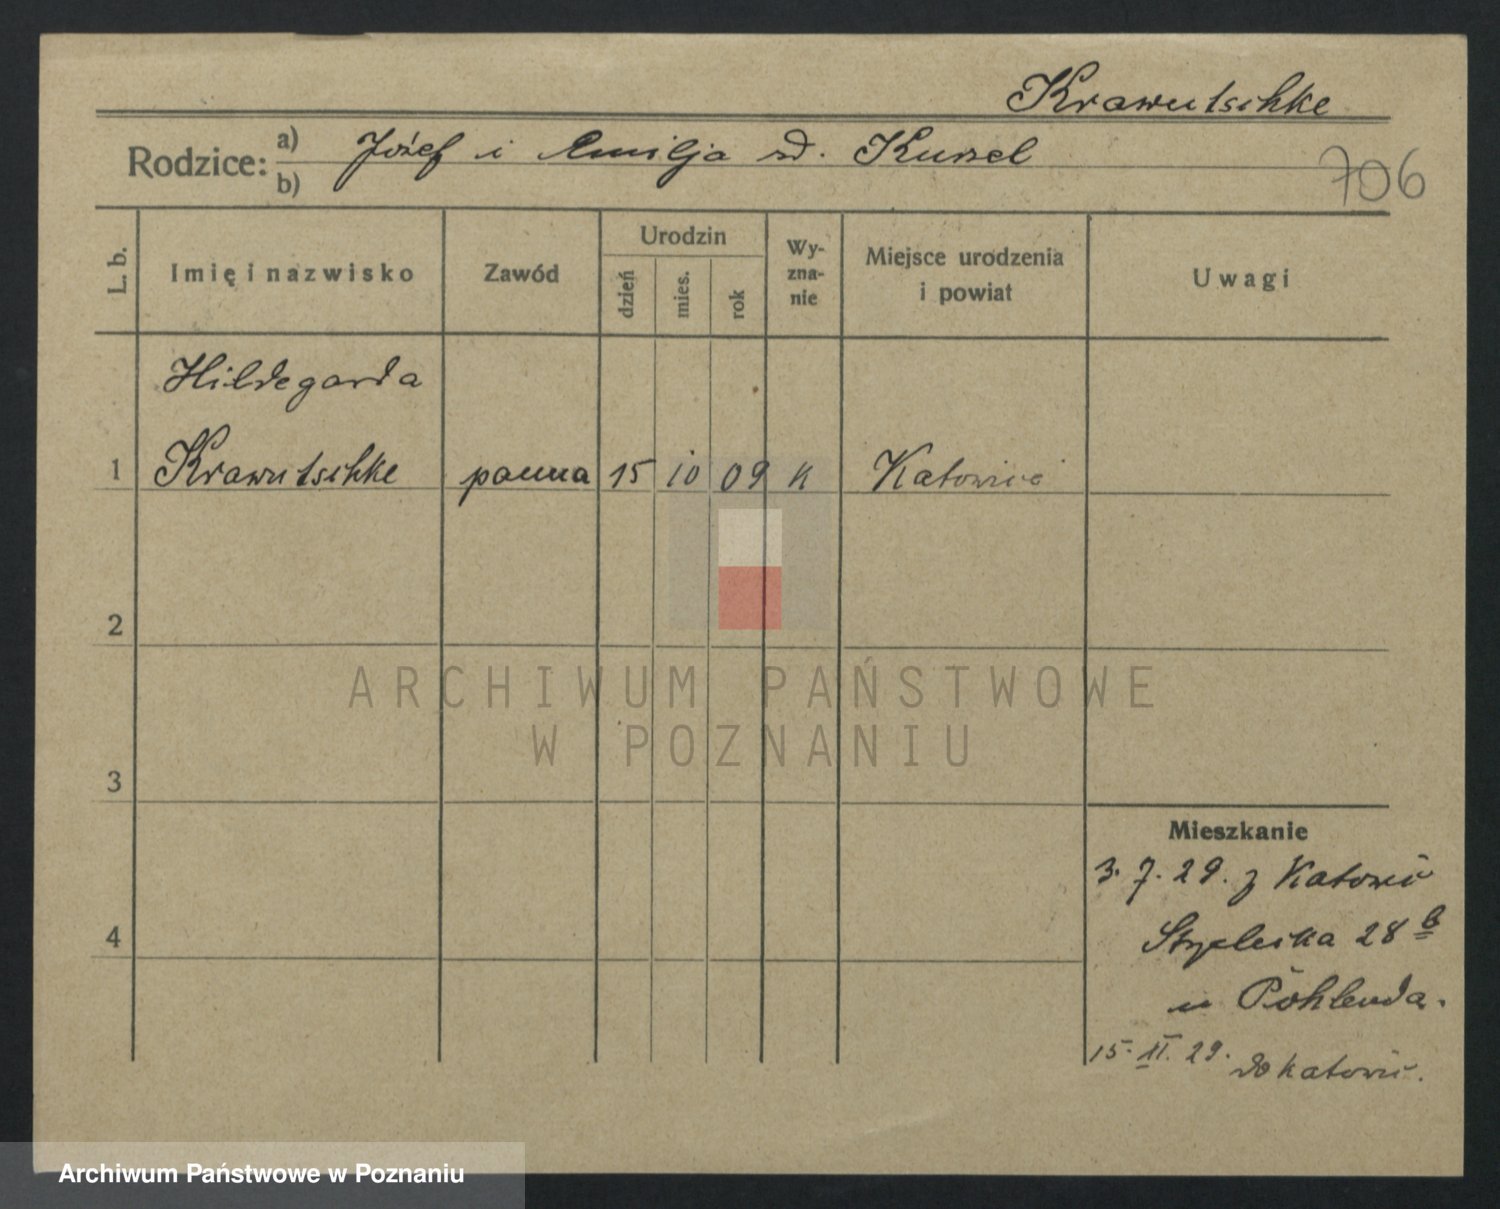 Krawutschke
Rodzice: a) Józef i Emilja zd. Kussel
b)
706
L. b.
Imię i nazwisko
Zawód
Urodzin
dzień
mies.
rok
Wy-
zna-
nie
Miejsce urodzenia
i powiat
Uwagi
Hildegarda
1 Krawutschke panna 15 10 09 k Katowice
2
3
4
Mieszkanie
3. 7. 29. z Katowic
Strzelecka 28 b
u Pöhlenda.
15. II. 29. do Katowic.
ARCHIWUM PAŃSTWOWE
W POZNANIU
Archiwum Państwowe w Poznaniu